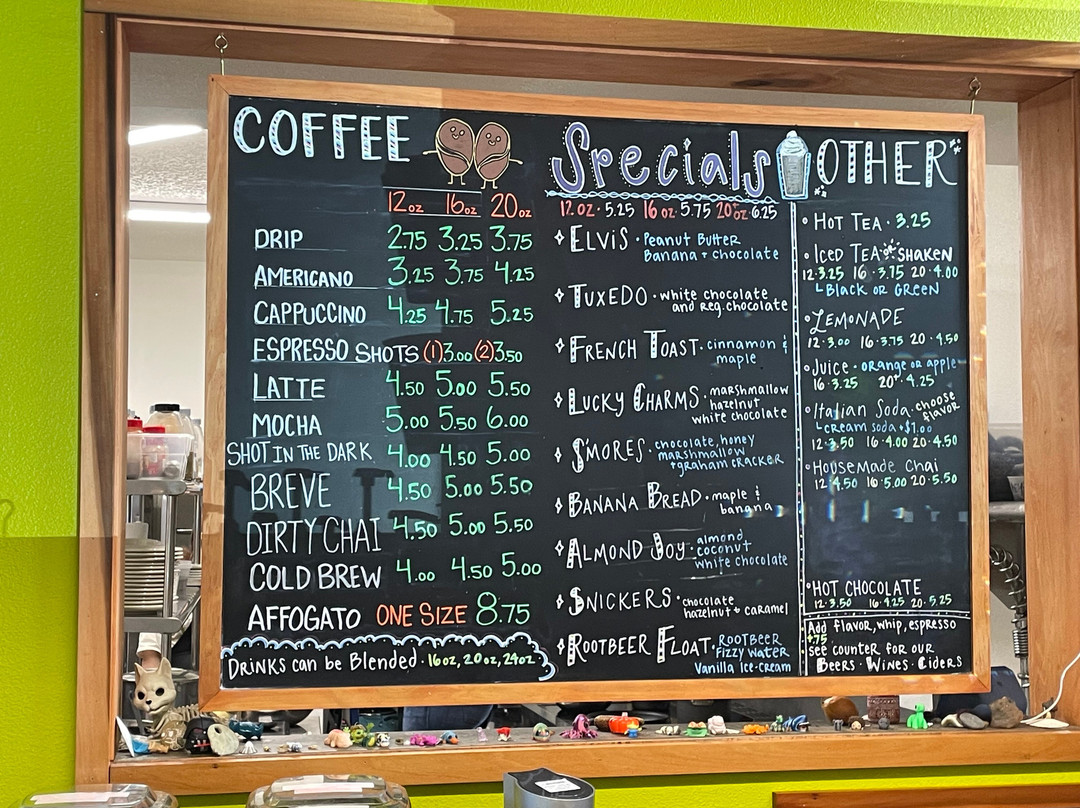 COFFEE
12oz 16oz 20oz
DRIP 2.75 3.25 3.75
AMERICANO 3.25 3.75 4.25
CAPPUCCINO 4.25 4.75 5.25
ESPRESSO SHOTS (1)3.00 (2)3.50
LATTE 4.50 5.00 5.50
MOCHA 5.00 5.50 6.00
SHOT IN THE DARK 4.00 4.50 5.00
BREVE 4.50 5.00 5.50
DIRTY CHAI 4.50 5.00 5.50
COLD BREW 4.00 4.50 5.00
AFFOGATO ONE SIZE 8.75
DRINKS can be Blended · 16oz, 20oz, 24oz
Specials
12 oz · 5.25 16 oz · 5.75 20 oz · 6.25
ELVIS · Peanut Butter
Banana + chocolate
TUXEDO · white chocolate
and reg. chocolate
FRENCH TOAST · cinnamon &
maple
LUCKY CHARMS · marshmallow
hazelnut
white chocolate
S'MORES · chocolate, honey
marshmallow
+ graham cracker
BANANA BREAD · maple &
banana
ALMOND JOY · almond
coconut
white chocolate
SNICKERS · chocolate
hazelnut + caramel
ROOTBEER FLOAT · ROOTBEER
Fizzy water
Vanilla Ice-cream
OTHER
· HOT TEA · 3.25
· ICED TEA SHAKEN
12·3.25 16·3.75 20·4.00
Black or Green
· LEMONADE
12·3.00 16·3.75 20·4.50
· Juice · orange or apple
16·3.25 20·4.25
· Italian Soda · choose
flavor
cream soda +$1.00
12·3.50 16·4.00 20·4.50
· HouseMade Chai
12·4.50 16·5.00 20·5.50
· HOT CHOCOLATE
12·3.50 16·4.25 20·5.25
Add flavor, whip, espresso
+.75
see counter for our
Beers · Wines · Ciders